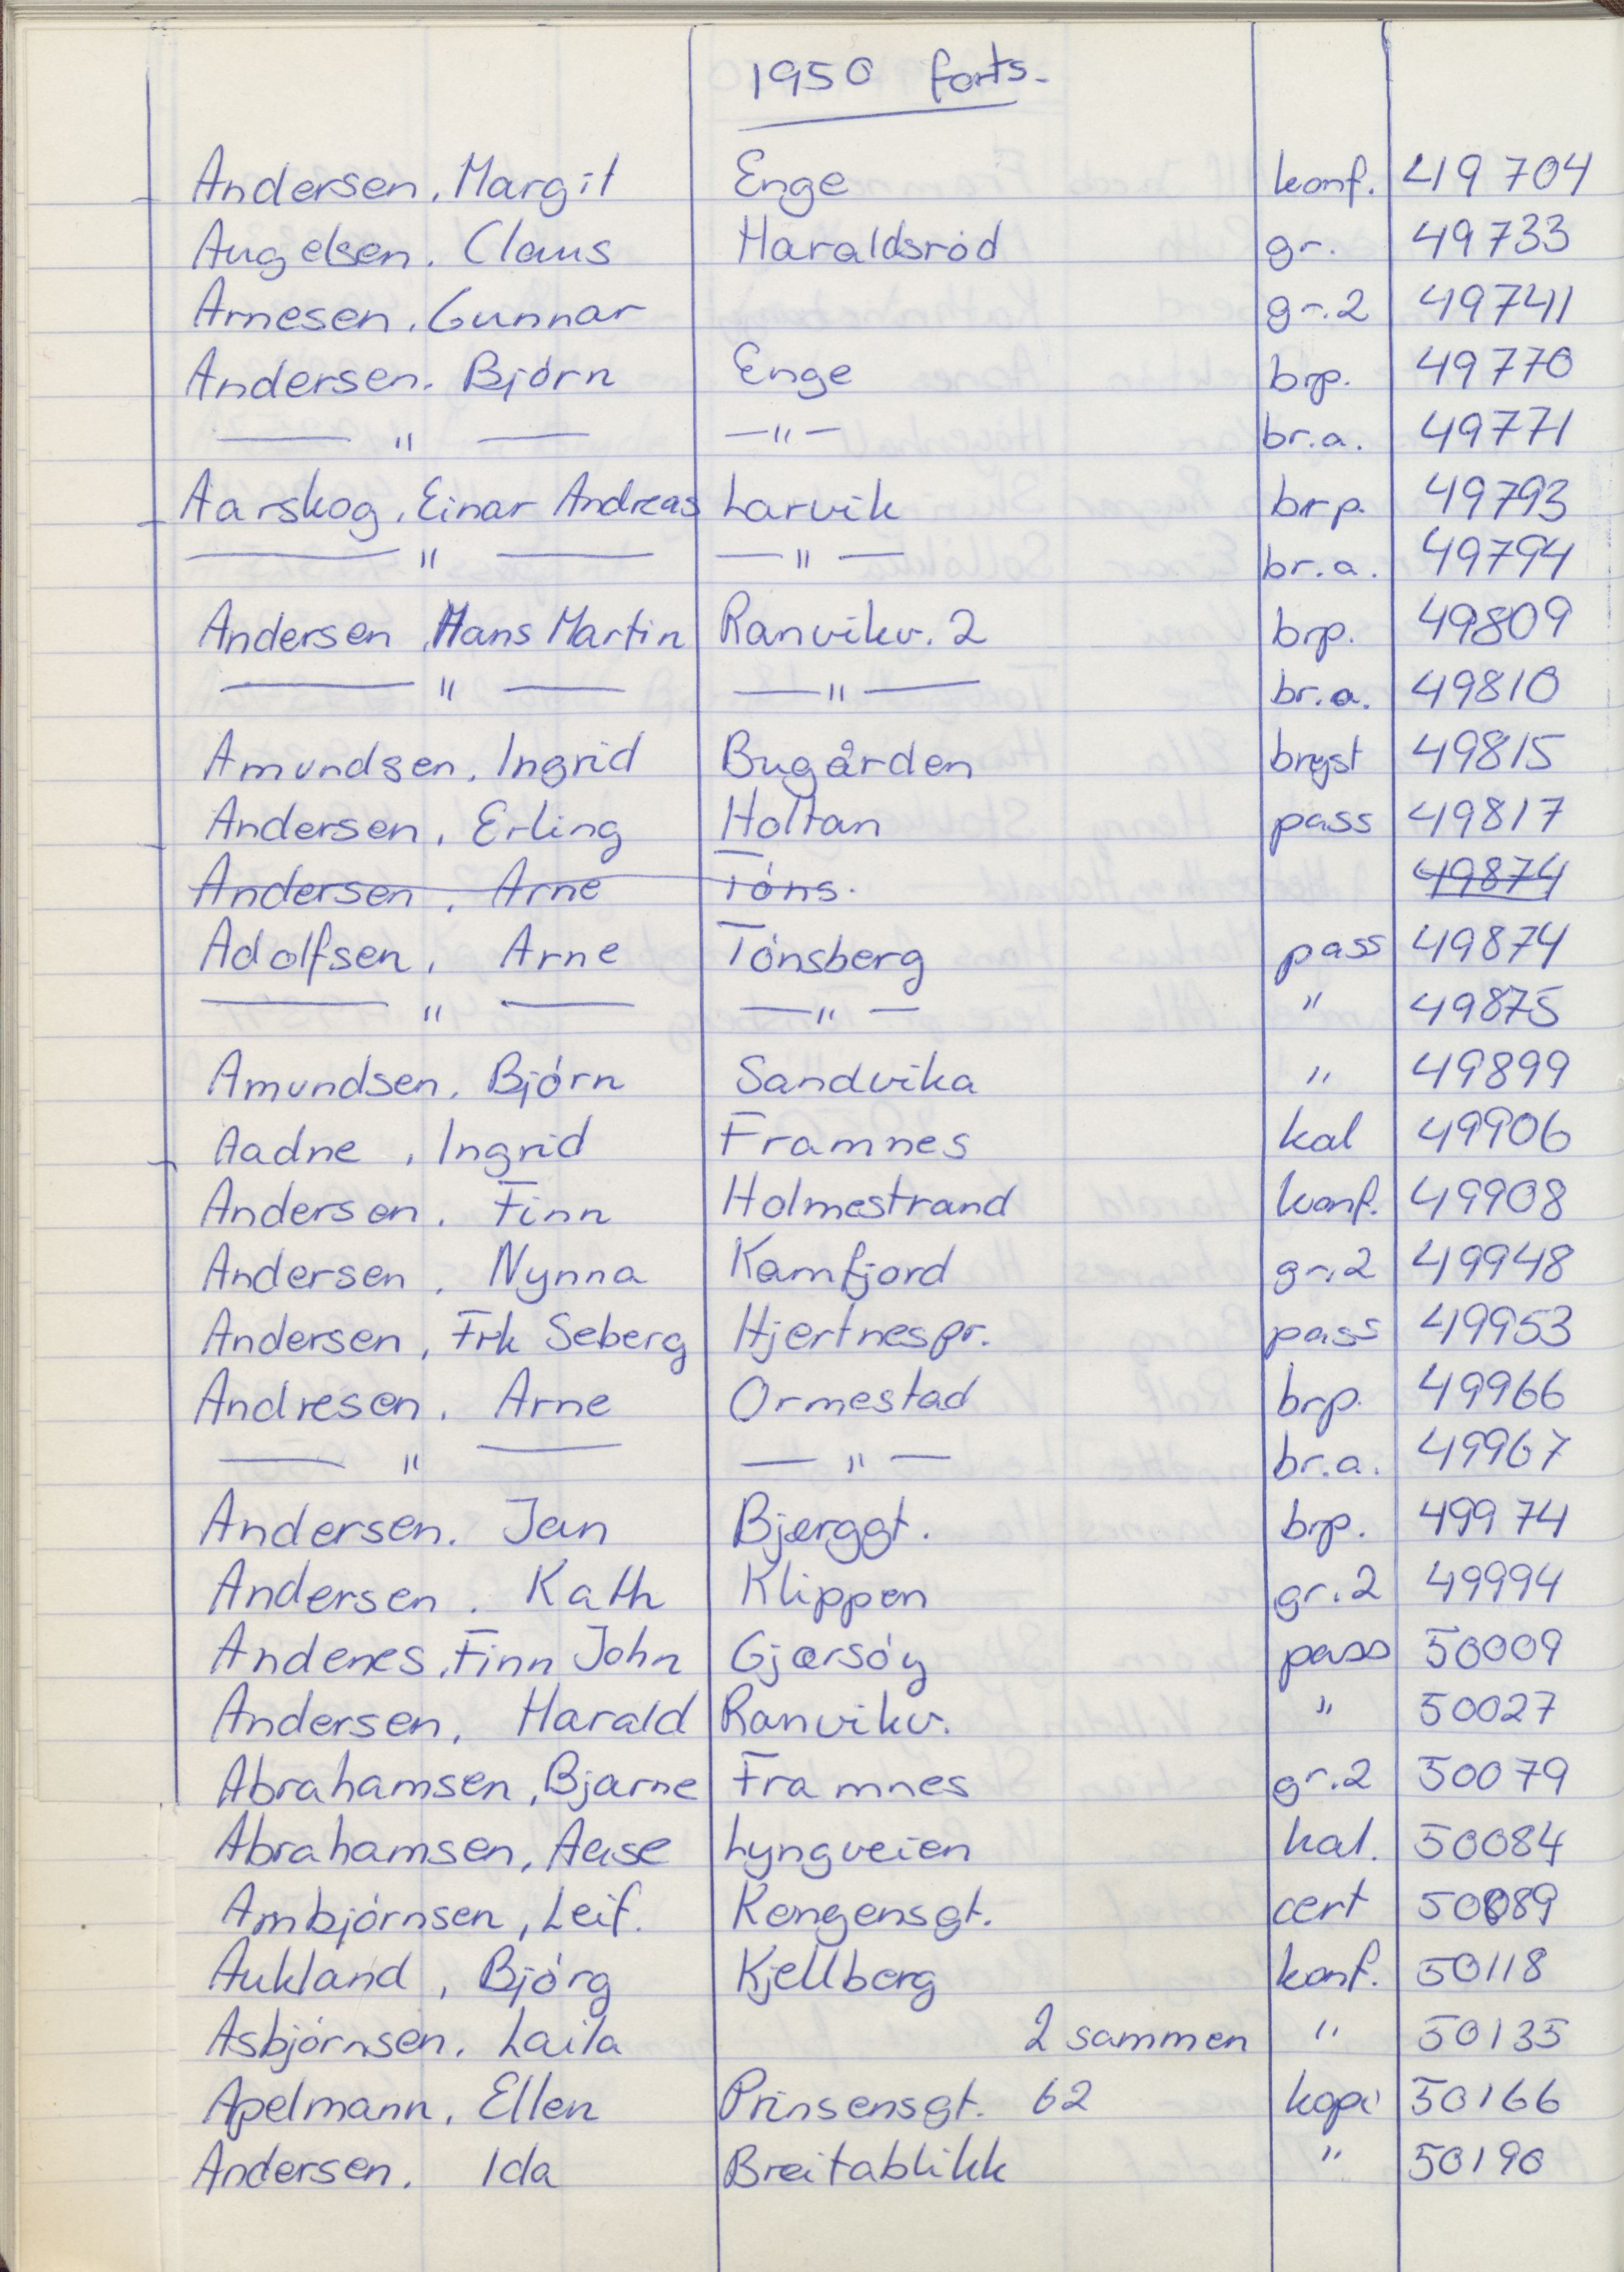 1950 forts.
Andersen, Margit Enge konf. 49704
Augelsen, Claus Haraldsród gr. 49733
Arnesen, Gunnar gr.2 49741
Andersen, Bjórn Enge brp. 49770
— " — — " — br.a. 49771
Aarskog, Einar Andreas Larvik brp. 49793
— " — — " — br.a. 49794
Andersen, Hans Martin Ranvikv. 2 brp. 49809
— " — — " — br.a. 49810
Amundsen, Ingrid Bugården bryst 49815
Andersen, Erling Holtan pass 49817
Andersen, Arne Tóns. 49874
Adolfsen, Arne Tónsberg pass 49874
— " — — " — " 49875
Amundsen, Bjórn Sandvika " 49899
Aadne, Ingrid Framnes kal 49906
Andersen, Finn Holmestrand konf. 49908
Andersen, Nynna Kamfjord gr.2 49948
Andersen, Frk Seberg Hjertnespr. pass 49953
Andresen, Arne Ormestad brp. 49966
— " — — " — br.a. 49967
Andersen, Jan Bjerggt. brp. 49974
Andersen, Kath Klippen gr.2 49994
Andenes, Finn John Gjærsóy pass 50009
Andersen, Harald Ranvikv. " 50027
Abrahamsen, Bjarne Framnes gr.2 50079
Abrahamsen, Aase Lyngveien kal. 50084
Ambjórnsen, Leif. Kongensgt. cert 50089
Aukland, Bjórg Kjellberg konf. 50118
Asbjórnsen, Laila 2 sammen " 50135
Apelmann, Ellen Prinsensgt. 62 kopi 50166
Andersen, Ida Breitablikk " 50190